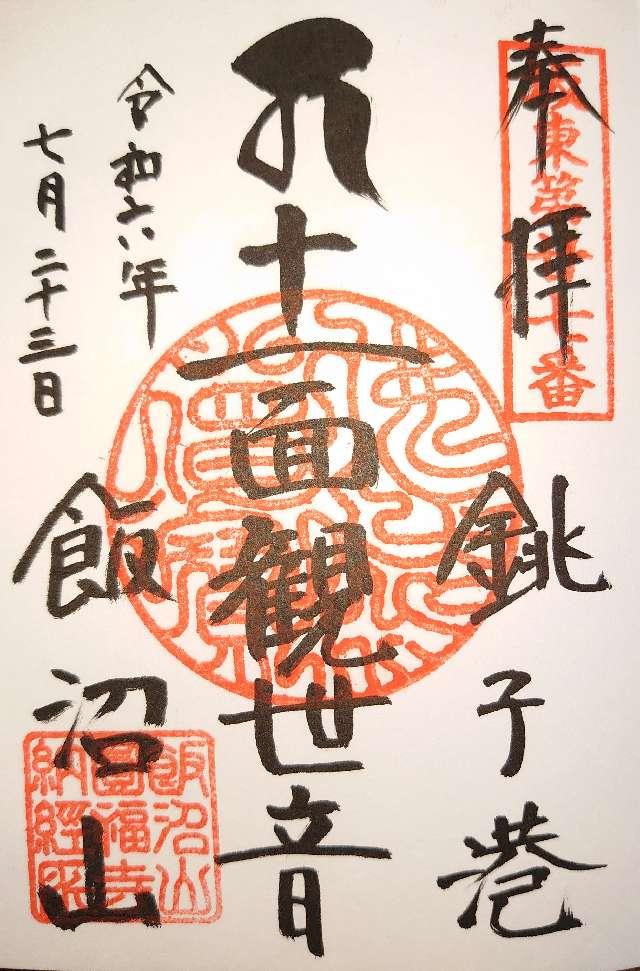 奉拝
坂東第二十七番
銚子港
十一面観世音
令和六年
七月二十三日
飯沼山
飯沼山
圓福寺
納経所